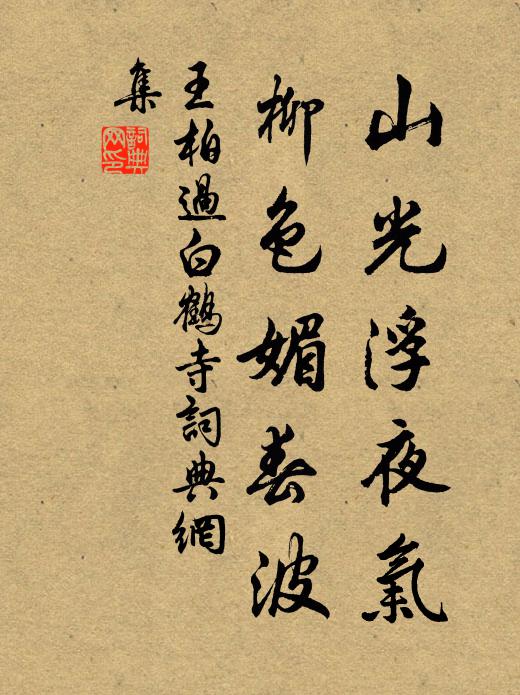 山光浮夜氣
柳色媚春波
王柏過白鶴寺詞典網
集
詞典
网印